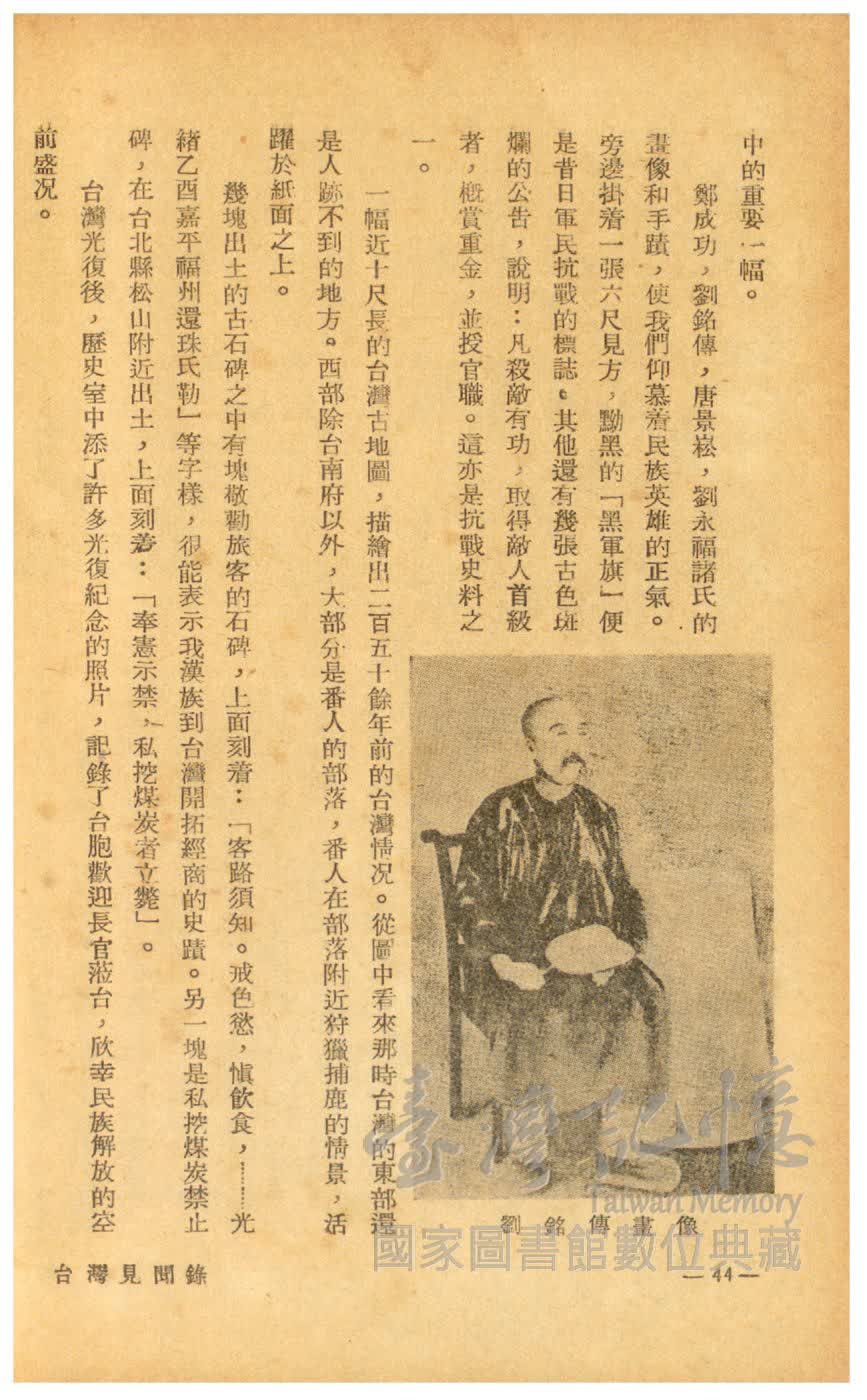 中的重要一幅。
鄭成功，劉銘傳，唐景崧，劉永福諸氏的
畫像和手蹟，使我們仰慕着民族英雄的正氣。
旁邊掛着一張六尺見方，黝黑的「黑軍旗」便
是昔日軍民抗戰的標誌。其他還有幾張古色斑
爛的公告，說明：凡殺敵有功，取得敵人首級
者，概賞重金，並授官職。這亦是抗戰史料之
一。
一幅近十尺長的台灣古地圖，描繪出二百五十餘年前的台灣情况。從圖中看來那時台灣的東部還
是人跡不到的地方。西部除台南府以外，大部分是番人的部落，番人在部落附近狩獵捕鹿的情景，活
躍於紙面之上。
幾塊出土的古石碑之中有塊敬勸旅客的石碑，上面刻着：「客路須知。戒色慾，愼飲食，……光
緒乙酉嘉平福州還珠氏勒」等字樣，很能表示我漢族到台灣開拓經商的史蹟。另一塊是私挖煤炭禁止
碑，在台北縣松山附近出土，上面刻着：「奉憲示禁，私挖煤炭者立斃」。
台灣光復後，歷史室中添了許多光復紀念的照片，記錄了台胞歡迎長官蒞台，欣幸民族解放的空
前盛况。
劉銘傳畫像
台灣見聞錄
—44—
臺灣記憶
Taiwan Memory
國家圖書館數位典藏